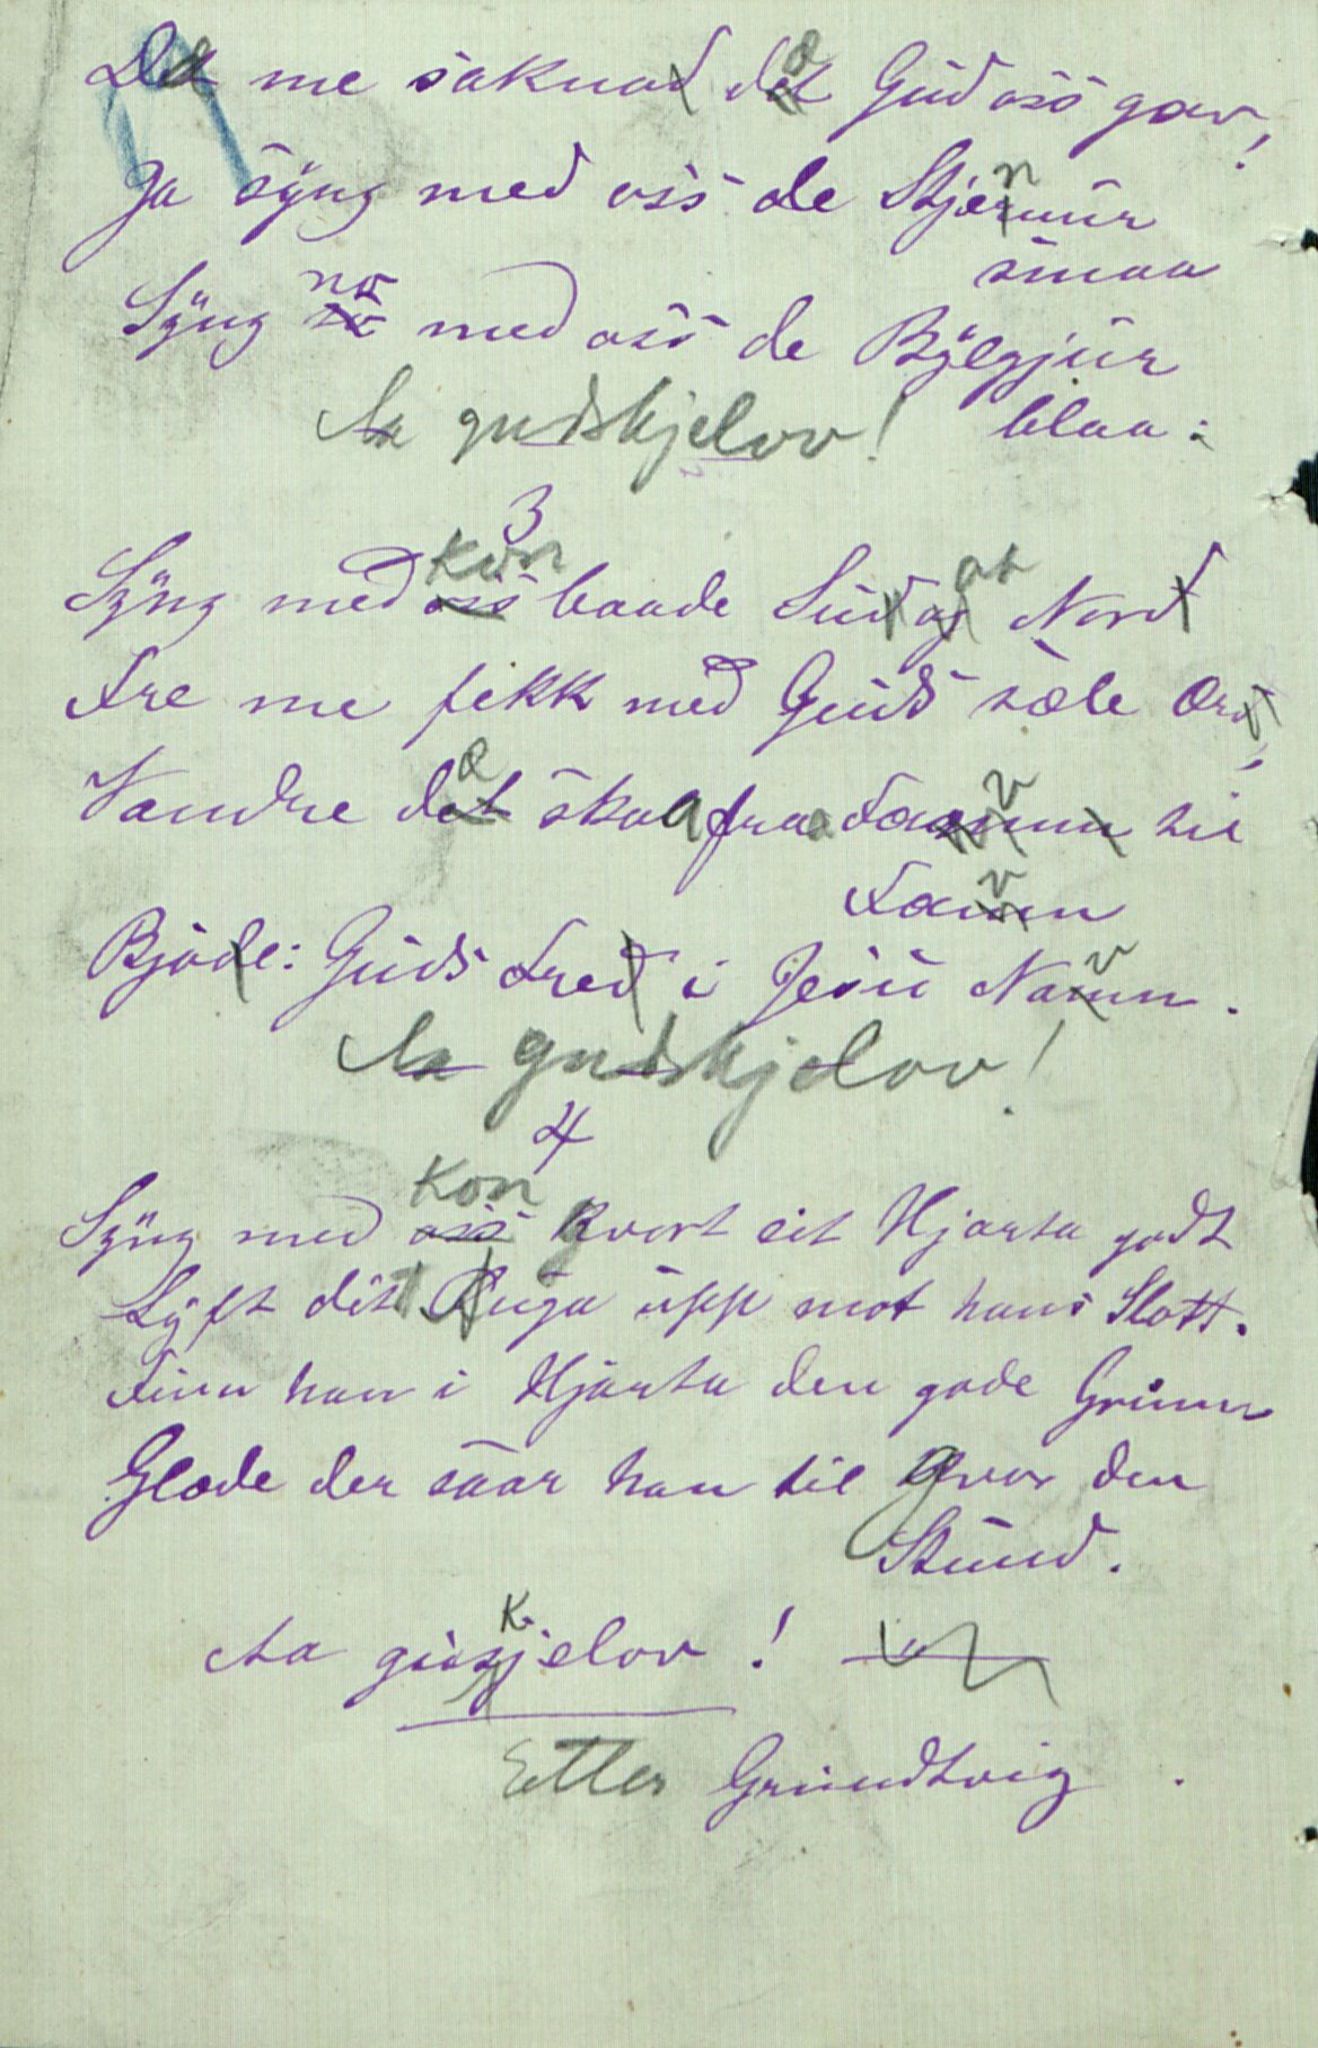 Det me saknad det Gud oss gav!
Ja syng med oss de Stjernur
smaa
Syng no med oss de Bylgjur
blaa:
Aa gudskjelov!
3
Kvn
Syng med oss baade Sud og Nord
Fre me fekk med Guds sæle Ord,
Vandre det skal fra Famnn til
Famn
Bjode: Guds Fred i Jesu Namn.
Aa gudskjelov!
4
Kon
Syng med oss kvart eit Hjarta godt
Lyft dit Auga upp mot hans Slott.
Finn han i Hjarta den gode Grunn
Glæde der saar han til kvar den
Stund.
Aa guskjelov!
Etter Grundtvig.